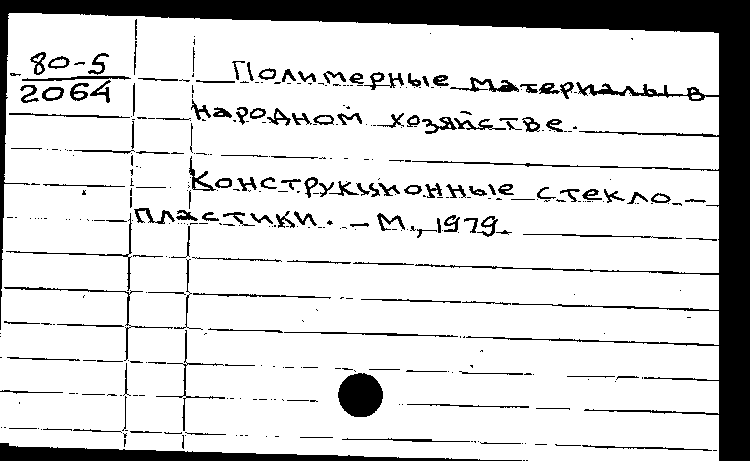 80-5
2064
Полимерные материалы в
народном хозяйстве.
Конструкционные стекло-
пластики. - М., 1979.